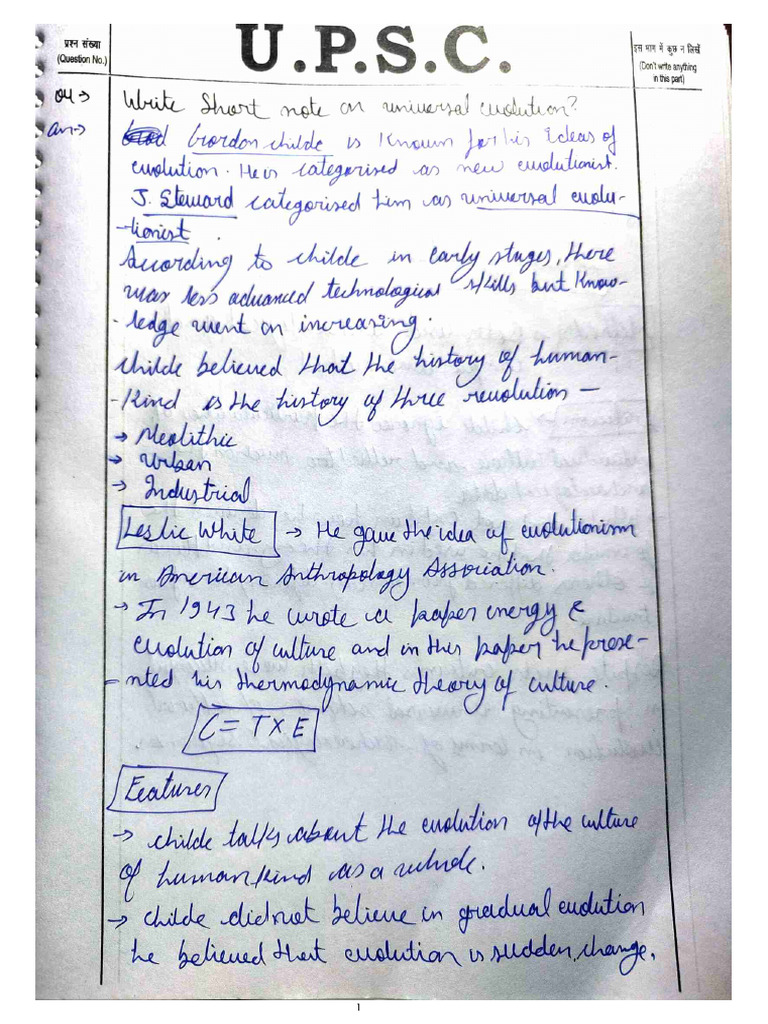 प्रश्न संख्या
(Question No.)
U.P.S.C.
इस भाग में कुछ न लिखें
(Don't write anything
in this part)
04→ Write Short note on universal evolution?
an→ Gordon childe is Known for his ideas of
evolution. He is categorised as new evolutionist.
J. Steward categorised him as universal evolu-
-tionist.
According to childe in early stages, there
was less advanced technological skills but Know-
-ledge went on increasing.
childe believed that the history of human-
-Kind is the history of three revolution —
→ Neolithic
→ Urban
→ Industrial
Leslie White → He gave the idea of evolutionism
in American Anthropology Association.
→ In 1943 he wrote a paper energy &
evolution of culture and in this paper he prese-
-nted his thermodynamic theory of culture.
C = T X E
Features
→ childe talks about the evolution of the culture
of human kind as a whole.
→ childe did not believe in gradual evolution
he believed that evolution is sudden change.
1